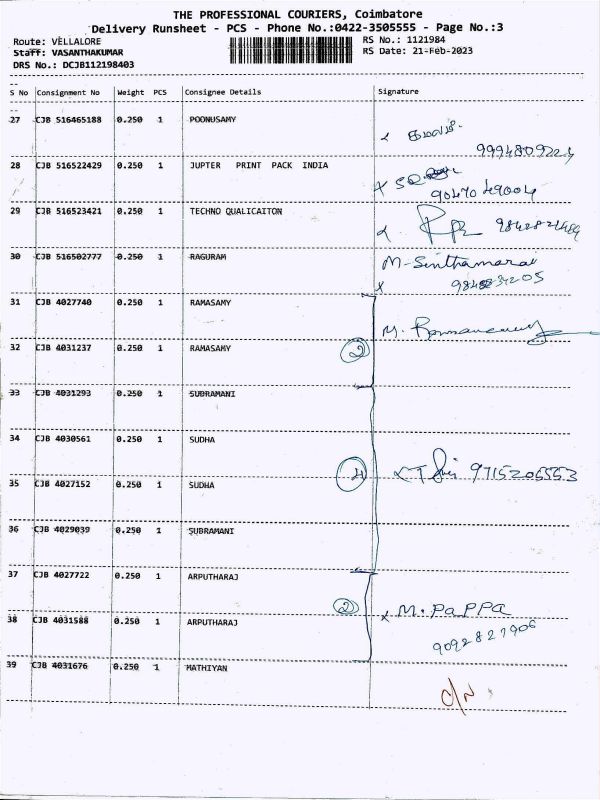 THE PROFESSIONAL COURIERS, Coimbatore
Delivery Runsheet - PCS - Phone No.:0422-3505555 - Page No.:3
Route: VELLALORE RS No.: 1121984
Staff: VASANTHAKUMAR RS Date: 21-Feb-2023
DRS No.: DCJB112198403
S No Consignment No Weight PCS Consignee Details Signature
27 CJB 516465188 0.250 1 POONUSAMY
28 CJB 516522429 0.250 1 JUPTER PRINT PACK INDIA
90470 49004
29 CJB 516523421 0.250 1 TECHNO QUALICAITON
30 CJB 516502777 0.250 1 RAGURAM M-Sinthamarai
31 CJB 4027740 0.250 1 RAMASAMY
32 CJB 4031237 0.250 1 RAMASAMY 2
33 CJB 4031293 0.250 1 SUBRAMANI
34 CJB 4030561 0.250 1 SUDHA
35 CJB 4027152 0.250 1 SUDHA 4 9715205553
36 CJB 4029039 0.250 1 SUBRAMANI
37 CJB 4027722 0.250 1 ARPUTHARAJ
2 x M. PaPPA
38 CJB 4031588 0.250 1 ARPUTHARAJ
9092827906
39 CJB 4031676 0.250 1 MATHIYAN
C/N